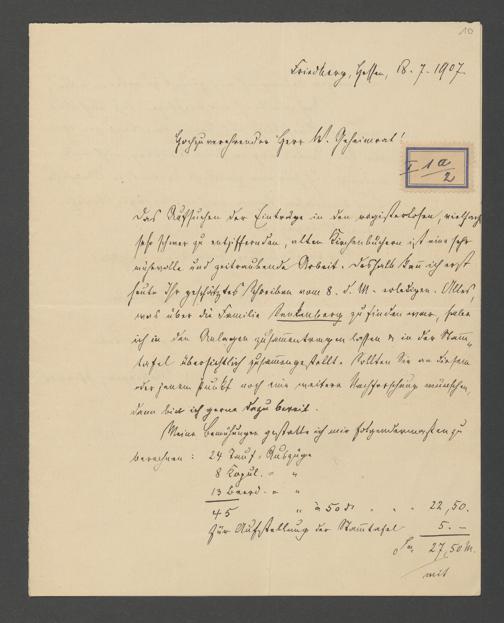 10
Friedberg, Hessen, 18.7.1907
Hochzuverehrender Herr W. Geheimrat!
I 1a/2
Das Aufsuchen der Einträge in den registerlosen, vielfach
sehr schwer zu entziffernden, alten Kirchenbüchern ist eine sehr
mühevolle und zeitraubende Arbeit. Deshalb kann ich erst
heute Ihr geschätztes Schreiben vom 8. d. M. erledigen. Alles,
was über die Familie Senckenberg zu finden war, habe
ich in den Anlagen zusammentragen lassen & in der Stamm-
tafel übersichtlich zusammengestellt. Sollten Sie an diesem
oder jenem Punkt noch eine weitere Nachforschung wünschen,
dann bin ich gerne dazu bereit.
Meine Bemühungen gestatte ich mir folgendermaßen zu
berechnen: 24 Tauf-Auszüge
8 Kopul. - "
13 Beerd. - "
45 " à 50 ₰ 22,50.
Für Aufstellung der Stammtafel 5. –
Sa. 27,50 M.
mit